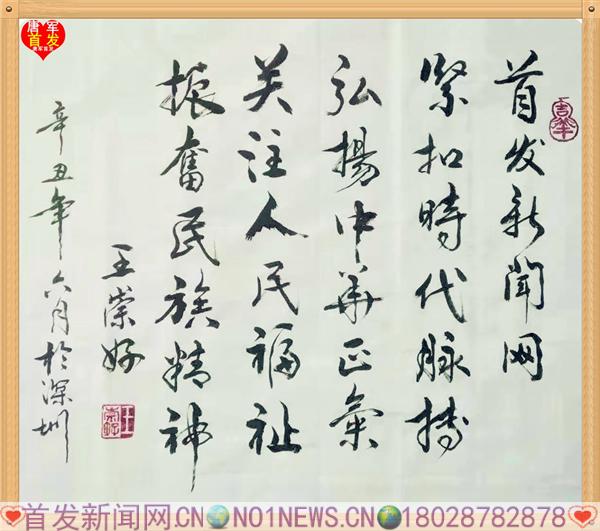 唐军
首发
首发新闻网
緊扣時代脉搏
弘揚中華正氣
关注人民福祉
振奮民族精神
王崇好
辛丑年六月於深圳
首发新闻网.CN NO1NEWS.CN 18028782878